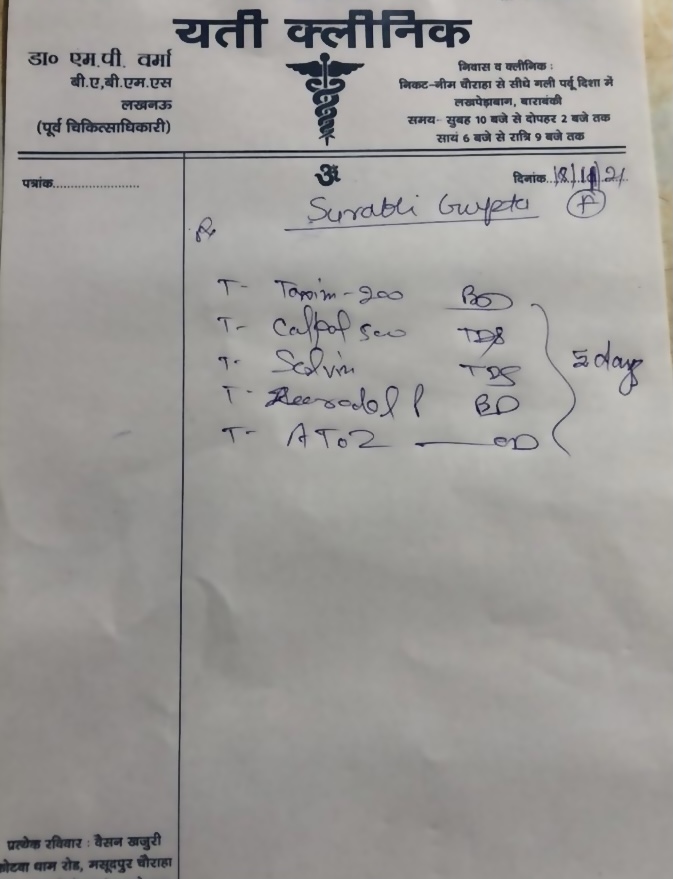 यती क्लीनिक
डा० एम.पी. वर्मा
बी.ए,बी.एम.एस
लखनऊ
(पूर्व चिकित्साधिकारी)
निवास व क्लीनिक :
निकट-नीम चौराहा से सीधे गली पर्वू दिशा में
लखपेड़ाबाग, बाराबंकी
समय- सुबह 10 बजे से दोपहर 2 बजे तक
सायं 6 बजे से रात्रि 9 बजे तक
पत्रांक........................
ॐ
दिनांक
Surabhi Gupta F
Rx
T- Taxim-200 BD
T- Calpol 500 TDS
T- Solvin TDS
T- P BD
T- A To Z OD
day
प्रत्येक रविवार : वैसन खजुरी
कोटवा धाम रोड, मसूदपुर चौराहा